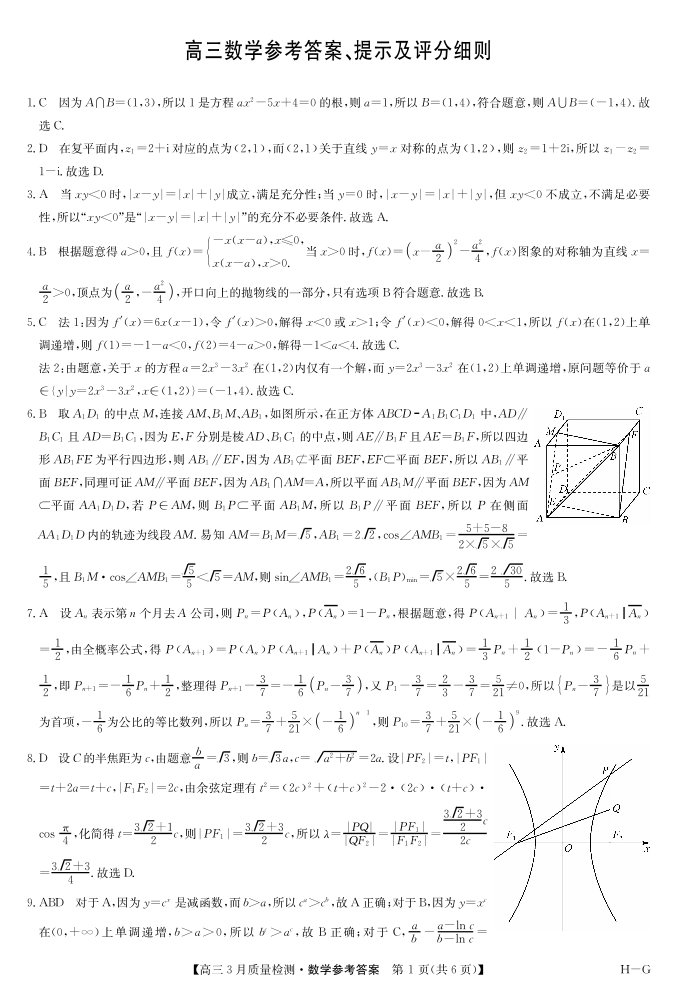 高三数学参考答案、提示及评分细则
1. C 因为A∩B=(1,3),所以1是方程ax²-5x+4=0的根,则a=1,所以B=(1,4),符合题意,则A∪B=(-1,4).故
选C.
2. D 在复平面内,z₁=2+i对应的点为(2,1),而(2,1)关于直线y=x对称的点为(1,2),则z₂=1+2i,所以z₁-z₂=
1-i.故选D.
3. A 当xy<0时,|x-y|=|x|+|y|成立,满足充分性;当y=0时,|x-y|=|x|+|y|,但xy<0不成立,不满足必要
性,所以“xy<0”是“|x-y|=|x|+|y|”的充分不必要条件.故选A.
4. B 根据题意得a>0,且f(x)={-x(x-a),x≤0, x(x-a),x>0. 当x>0时,f(x)=(x-a/2)²-a²/4,f(x)图象的对称轴为直线x=
a/2>0,顶点为(a/2,-a²/4),开口向上的抛物线的一部分,只有选项B符合题意.故选B.
5. C 法1:因为f′(x)=6x(x-1),令f′(x)>0,解得x<0或x>1;令f′(x)<0,解得0<x<1,所以f(x)在(1,2)上单
调递增,则f(1)=-1-a<0,f(2)=4-a>0,解得-1<a<4.故选C.
法2:由题意,关于x的方程a=2x³-3x²在(1,2)内仅有一个解,而y=2x³-3x²在(1,2)上单调递增,原问题等价于a
∈{y|y=2x³-3x²,x∈(1,2)}=(-1,4).故选C.
6. B 取A₁D₁的中点M,连接AM,B₁M,AB₁,如图所示,在正方体ABCD-A₁B₁C₁D₁中,AD∥
B₁C₁且AD=B₁C₁,因为E,F分别是棱AD,B₁C₁的中点,则AE∥B₁F且AE=B₁F,所以四边
形AB₁FE为平行四边形,则AB₁∥EF,因为AB₁⊄平面BEF,EF⊂平面BEF,所以AB₁∥平
面BEF,同理可证AM∥平面BEF,因为AB₁∩AM=A,所以平面AB₁M∥平面BEF,因为AM
⊂平面AA₁D₁D,若P∈AM,则B₁P⊂平面AB₁M,所以B₁P∥平面BEF,所以P在侧面
AA₁D₁D内的轨迹为线段AM.易知AM=B₁M=√5,AB₁=2√2,cos∠AMB₁=(5+5-8)/(2×√5×√5)=
1/5,且B₁M·cos∠AMB₁=√5/5<√5=AM,则sin∠AMB₁=2√6/5,(B₁P)min=√5×2√6/5=2√30/5.故选B.
7. A 设Aₙ表示第n个月去A公司,则Pₙ=P(Aₙ),P(A̅ₙ)=1-Pₙ,根据题意,得P(Aₙ₊₁|Aₙ)=1/3,P(Aₙ₊₁|A̅ₙ)
=1/2,由全概率公式,得P(Aₙ₊₁)=P(Aₙ)P(Aₙ₊₁|Aₙ)+P(A̅ₙ)P(Aₙ₊₁|A̅ₙ)=1/3Pₙ+1/2(1-Pₙ)=-1/6Pₙ+
1/2,即Pₙ₊₁=-1/6Pₙ+1/2,整理得Pₙ₊₁-3/7=-1/6(Pₙ-3/7),又P₁-3/7=2/3-3/7=5/21≠0,所以{Pₙ-3/7}是以5/21
为首项,-1/6为公比的等比数列,所以Pₙ=3/7+5/21×(-1/6)ⁿ⁻¹,则P₁₀=3/7+5/21×(-1/6)⁹.故选A.
8. D 设C的半焦距为c,由题意b/a=√3,则b=√3a,c=√(a²+b²)=2a.设|PF₂|=t,|PF₁|
=t+2a=t+c,|F₁F₂|=2c,由余弦定理有t²=(2c)²+(t+c)²-2·(2c)·(t+c)·
cos π/4,化简得t=(3√2+1)/2 c,则|PF₁|=(3√2+3)/2 c,所以λ=|PQ|/|QF₂|=|PF₁|/|F₁F₂|=((3√2+3)/2 c)/2c
=(3√2+3)/4.故选D.
9. ABD 对于A,因为y=cˣ是减函数,而b>a,所以cᵃ>cᵇ,故A正确;对于B,因为y=xᶜ
在(0,+∞)上单调递增,b>a>0,所以bᶜ>aᶜ,故B正确;对于C,a/b-(a-ln c)/(b-ln c)=
【高三3月质量检测·数学参考答案 第1页(共6页)】 H-G